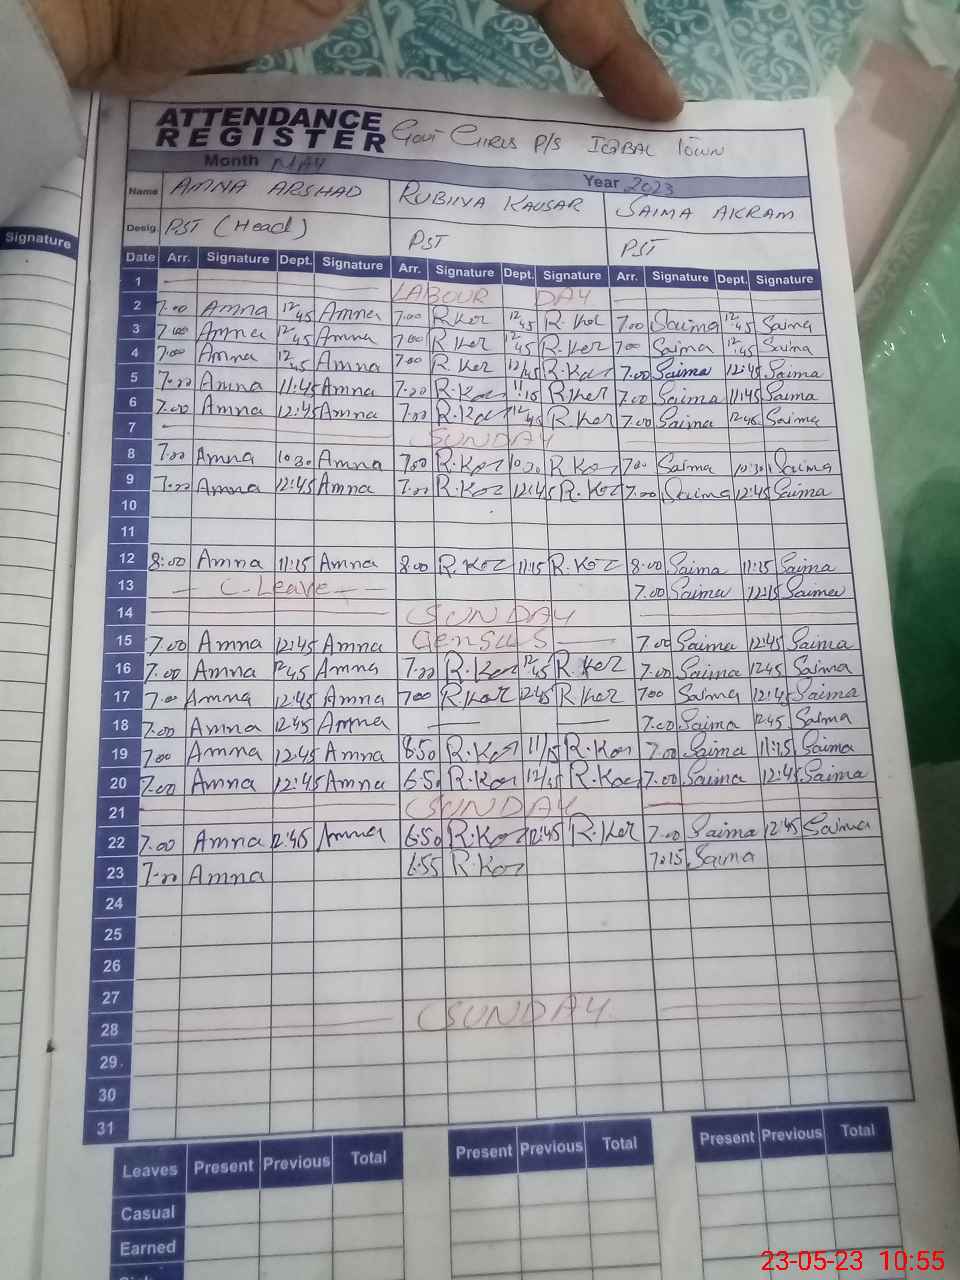 ATTENDANCE REGISTER Govt Girls P/S IQBAL TOWN
Month MAY Year 2023
Name AMNA ARSHAD RUBINA KAUSAR SAIMA AKRAM
Desig. PST (Head) PST PST
Signature
Date Arr. Signature Dept. Signature Arr. Signature Dept. Signature Arr. Signature Dept. Signature
1 LABOUR DAY
2 7.00 Amna 12/45 Amna 7.00 R.Ker 12/45 R.Ker 7.00 Saima 12/45 Saima
3 7.00 Amna 12/45 Amna 7.00 R.Ker 12/45 R.Ker 7.00 Saima 12/45 Saima
4 7.00 Amna 12/45 Amna 7.00 R.Ker 12/45 R.Kor 7.00 Saima 12:45 Saima
5 7.00 Amna 11:45 Amna 7.00 R.Kor R.Ker 7.00 Saima 11:45 Saima
6 7.00 Amna 12:45 Amna 7.00 R.Kor 12/45 R.Ker 7.00 Saima 12:45 Saima
7 SUNDAY
8 7.00 Amna 10 30 Amna 7.00 R.Kor 10.30 R.Kor 7.00 Saima 10:30 Saima
9 7.00 Amna 12:45 Amna 7.00 R.Koz 12:45 R.Koz 7.00 Saima 12:45 Saima
10
11
12 8:00 Amna 11:15 Amna 8.00 R.Koz 11:15 R.Koz 8:00 Saima 11:15 Saima
13 C.Leave 7.00 Saima 12:15 Saima
14 SUNDAY
15 7.00 Amna 12:45 Amna Census 7.00 Saima 12:45 Saima
16 7.00 Amna 12/45 Amna 7.00 R.Kor 12/45 R.Ker 7.00 Saima 12.45 Saima
17 7.00 Amna 12:45 Amna 7.00 R.Kor 12:45 R.Ker 7.00 Saima 12:45 Saima
18 7.00 Amna 12:45 Amna 7.00 Saima 12.45 Saima
19 7.00 Amna 12:45 Amna 8.50 R.Kor 11/15 R.Kor 7.00 Saima 11:15 Saima
20 7.00 Amna 12:45 Amna 6.50 R.Kor 12/45 R.Kor 7.00 Saima 12:45 Saima
21 SUNDAY
22 7.00 Amna 12:45 Amna 6.50 R.Kor 12:45 R.Ker 7.00 Saima 12:45 Saima
23 7.00 Amna 6.55 R.Koz 7.15 Saima
24
25
26
27
28 SUNDAY
29
30
31
Leaves Present Previous Total Present Previous Total Present Previous Total
Casual
Earned
23-05-23 10:55